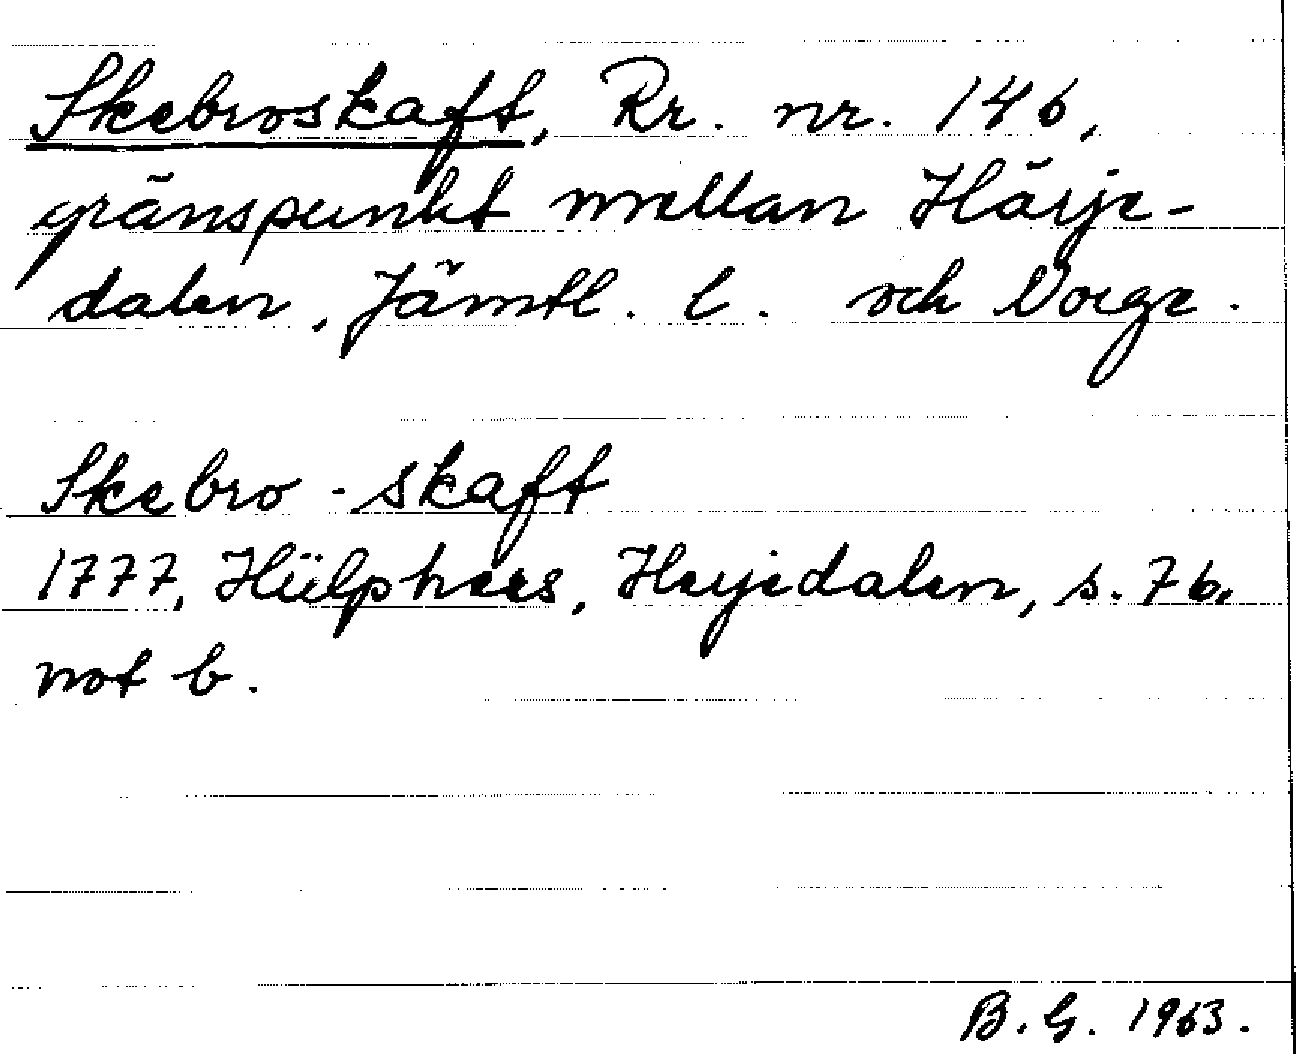 Skebroskaft, Rr. nr. 146,
gränspunkt mellan Härje-
dalen, Jämtl. l. och Norge.
Skebro-skaft
1777, Hülphers, Herjedalen, s. 76.
not b.
B. G. 1963.